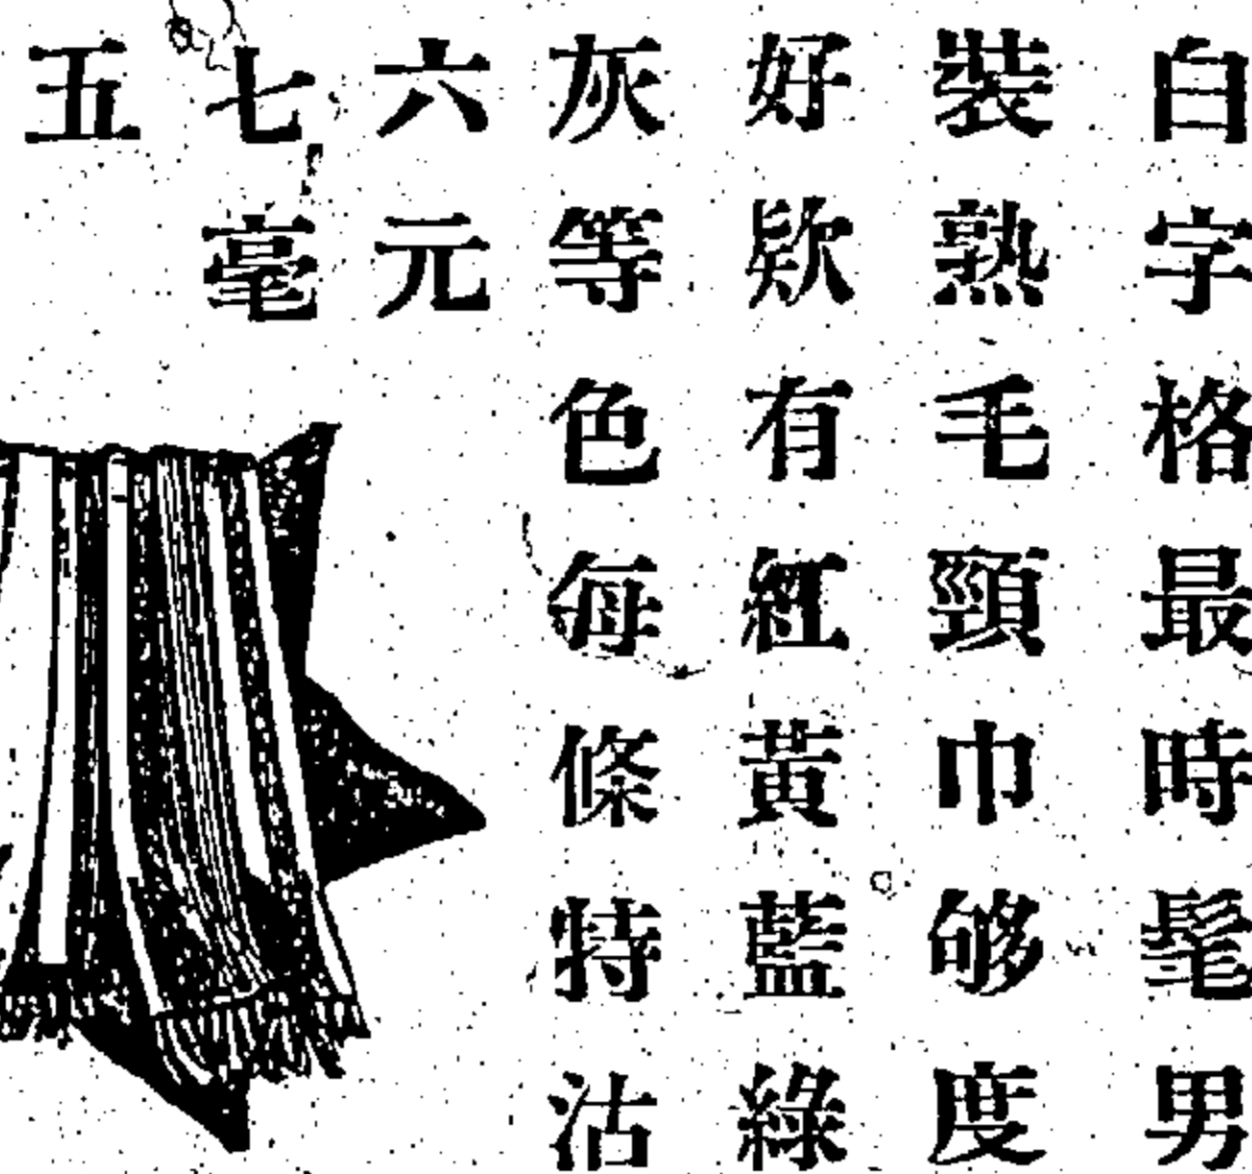 白字格最時髦男
裝熟毛頸巾够度
好欵有紅黃藍綠
灰等色每條特沽
六元
七毫
五